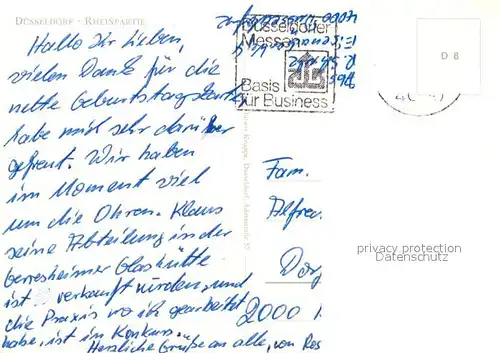 DÜSSELDORF · RHEINPARTIE
Hallo Ihr Lieben,
vielen Dank für die
nette Geburtstagskarte,
habe mich sehr darüber
gefreut. Wir haben
im Moment viel
um die Ohren. Klaus
seine Abteilung in der
Gerresheimer Glashütte
ist verkauft worden, und
die Praxis wo ich gearbeitet
habe, ist im Konkurs.
Herzliche Grüße an alle, von
Düsseldorfer
Messen
Basis
für Business
D 8
Fam.
Alfred
2000
privacy protection
Datenschutz